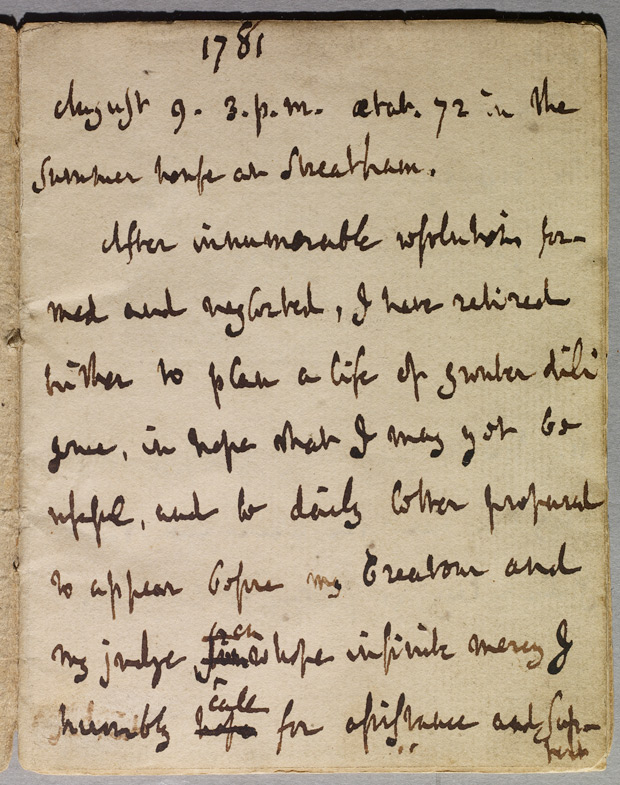 1781
August 9. 3.p.m. ætat. 72 in the
summer house at Streatham.
After innumerable resolutions for-
med and neglected, I have retired
hither to plan a life of greater dili
gence, in hope that I may yet be
useful, and be daily better prepared
to appear before my Creatour and
my judge from whose infinite mercy I
humbly hope call for assistance and sup-
port